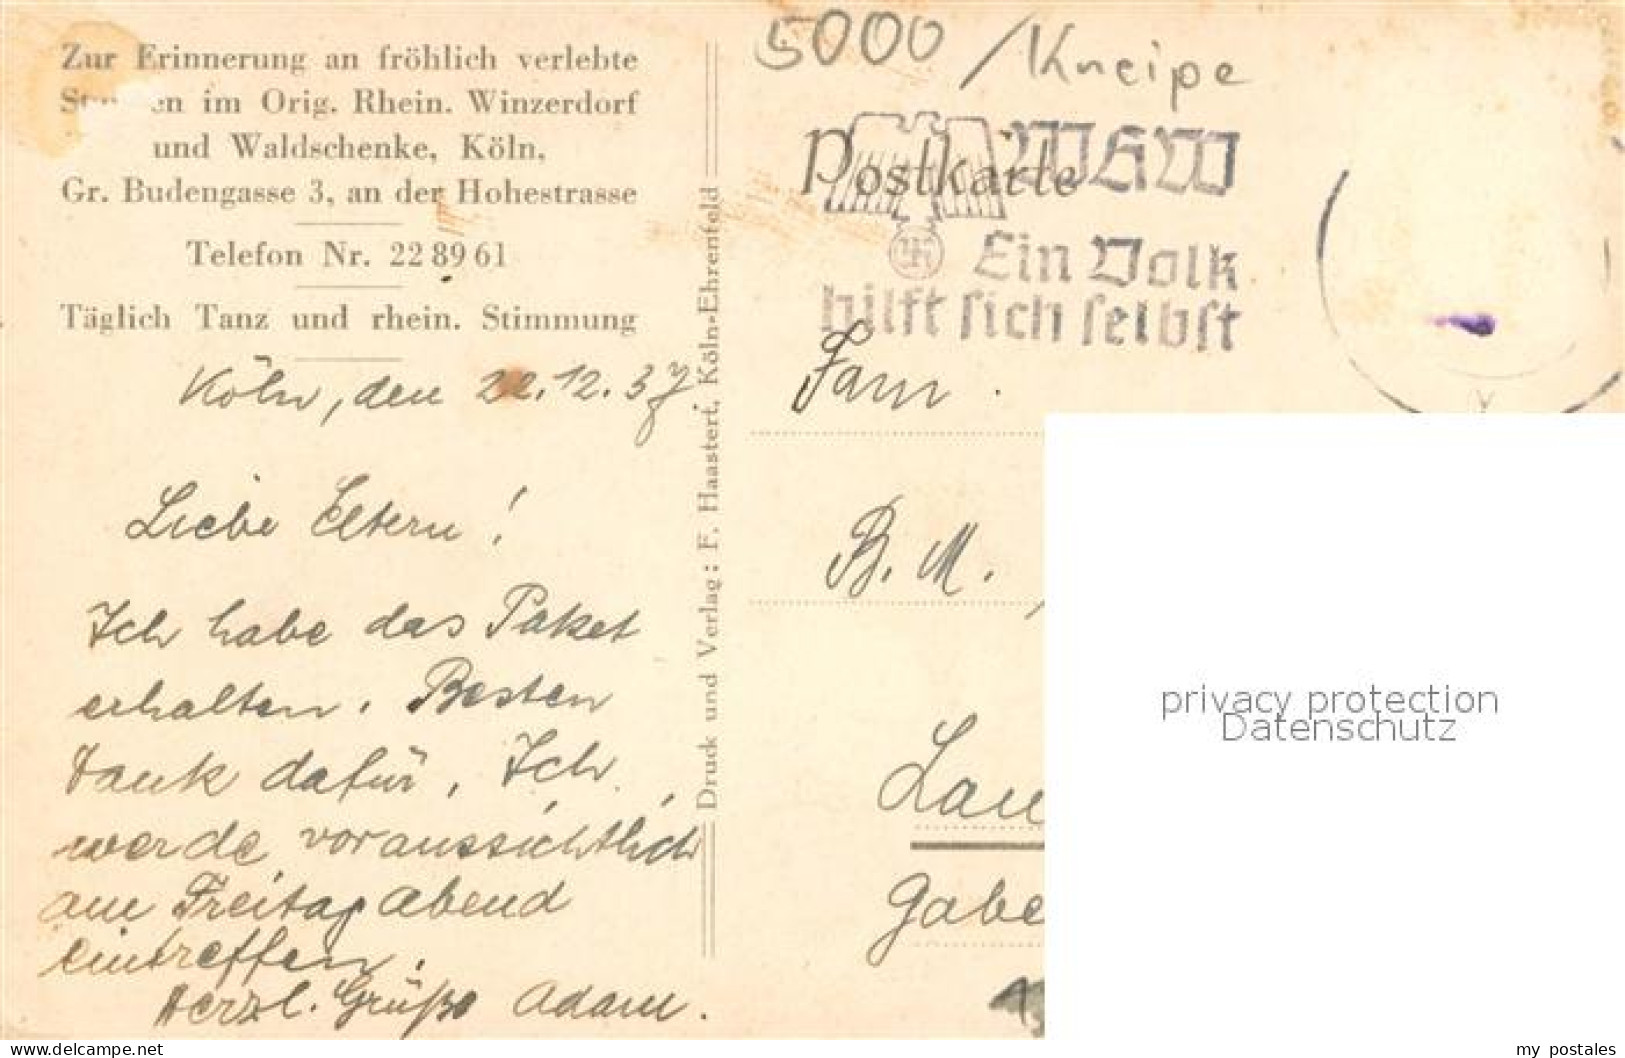 Zur Erinnerung an fröhlich verlebte
en im Orig. Rhein. Winzerdorf
und Waldschenke, Köln,
Gr. Budengasse 3, an der Hohestrasse
Telefon Nr. 22 89 61
Täglich Tanz und rhein. Stimmung
Köln, den 22.12.37
Liebe Eltern!
Ich habe das Paket
erhalten. Besten
Dank dafür. Ich
werde voraussichtlich
am Freitag abend
eintreffen.
Herzl. Grüße Adam.
Druck und Verlag: F. Haastert, Köln-Ehrenfeld
5000 / Kneipe
Postkarte
WHW
Ein Volk
hilft sich selbst
Fam.
B. M.
Lau
Gabe
privacy protection
Datenschutz
www.delcampe.net
my_postales